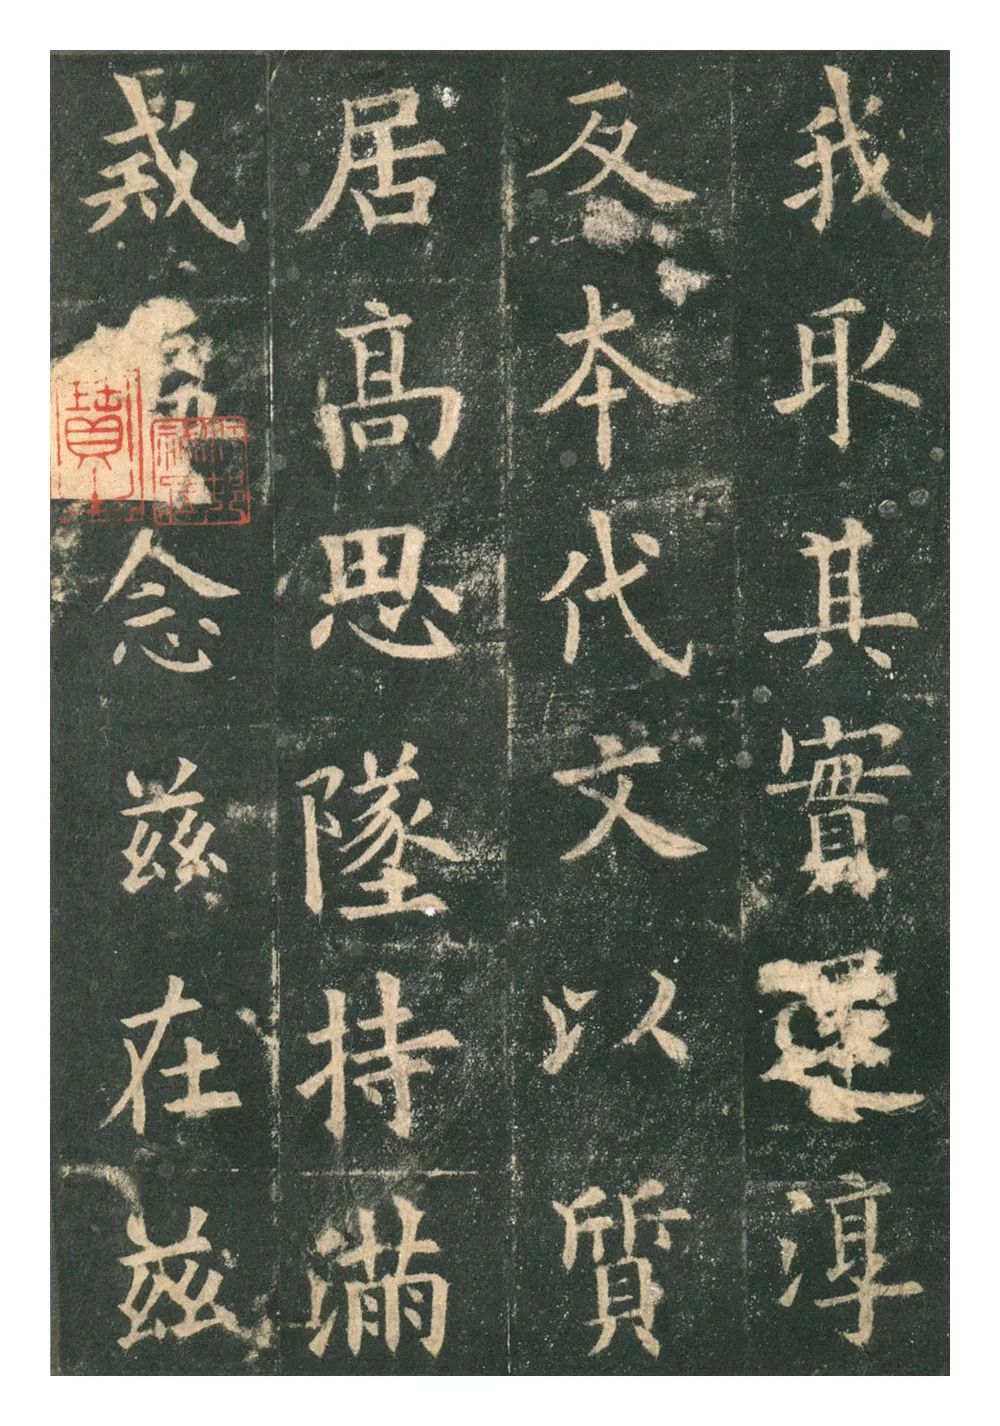 我取其實還淳
反本代文以質
居高思墜持滿
戒溢念茲在茲